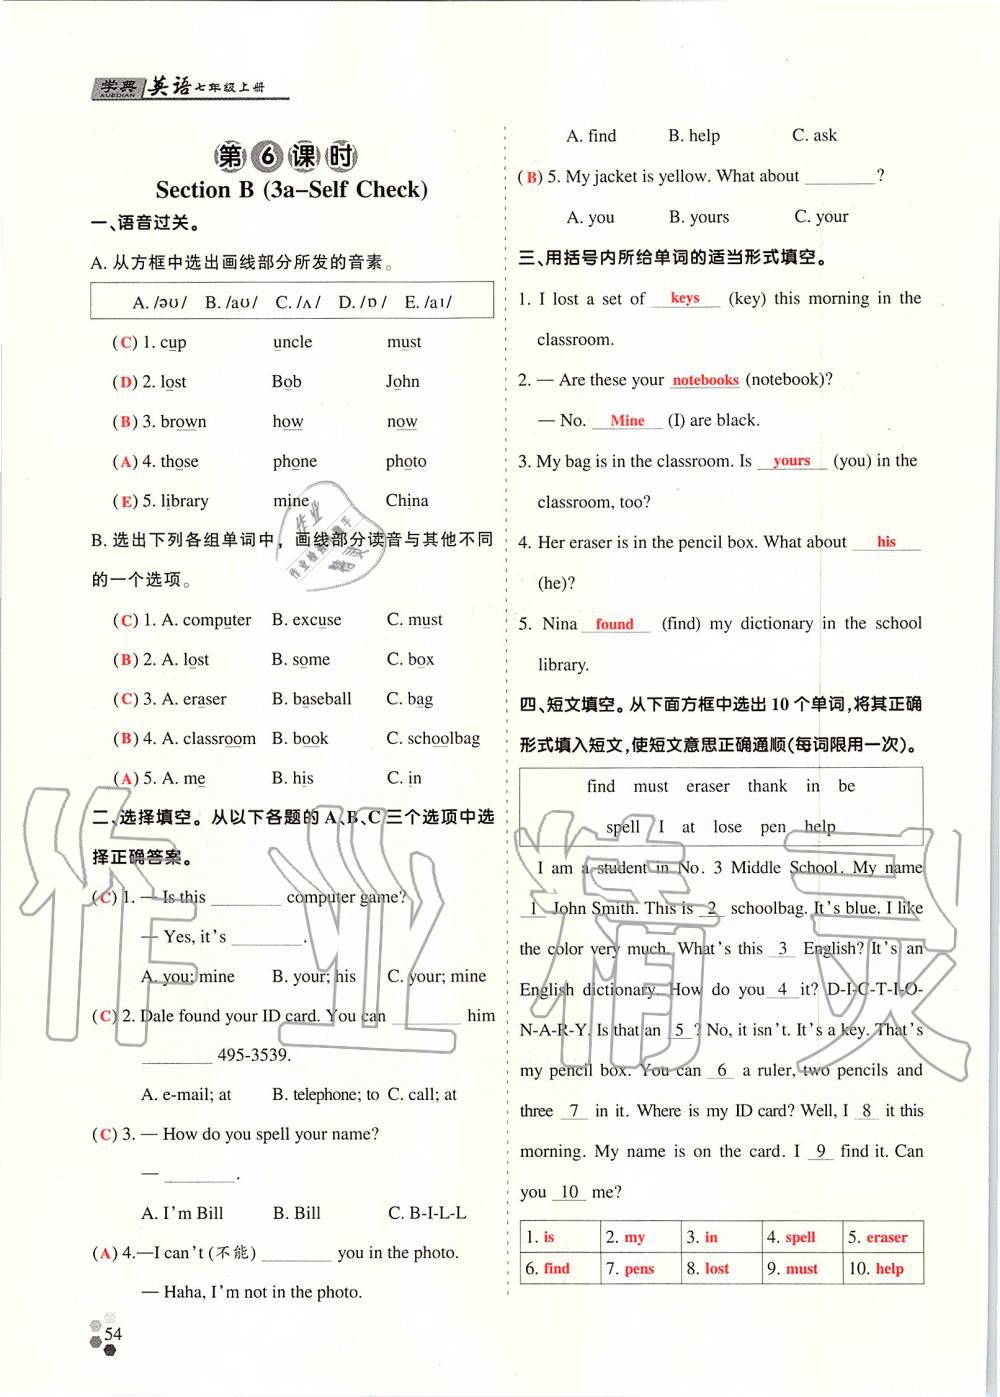 学典
XUEDIAN
英语七年级上册
第6课时
Section B (3a-Self Check)
一、语音过关。
A. 从方框中选出画线部分所发的音素。
A. /əʊ/ B. /aʊ/ C. /ʌ/ D. /ɒ/ E. /aɪ/
(C) 1. cup uncle must
(D) 2. lost Bob John
(B) 3. brown how now
(A) 4. those phone photo
(E) 5. library mine China
B. 选出下列各组单词中，画线部分读音与其他不同
的一个选项。
(C) 1. A. computer B. excuse C. must
(B) 2. A. lost B. some C. box
(C) 3. A. eraser B. baseball C. bag
(B) 4. A. classroom B. book C. schoolbag
(A) 5. A. me B. his C. in
二、选择填空。从以下各题的A、B、C三个选项中选
择正确答案。
(C) 1. — Is this ________ computer game?
— Yes, it's ________.
A. you; mine B. your; his C. your; mine
(C) 2. Dale found your ID card. You can ________ him
________ 495-3539.
A. e-mail; at B. telephone; to C. call; at
(C) 3. — How do you spell your name?
— ________.
A. I'm Bill B. Bill C. B-I-L-L
(A) 4.—I can't (不能) ________ you in the photo.
— Haha, I'm not in the photo.
54
A. find B. help C. ask
(B) 5. My jacket is yellow. What about ________?
A. you B. yours C. your
三、用括号内所给单词的适当形式填空。
1. I lost a set of keys (key) this morning in the
classroom.
2. — Are these your notebooks (notebook)?
— No. Mine (I) are black.
3. My bag is in the classroom. Is yours (you) in the
classroom, too?
4. Her eraser is in the pencil box. What about his
(he)?
5. Nina found (find) my dictionary in the school
library.
四、短文填空。从下面方框中选出10个单词,将其正确
形式填入短文,使短文意思正确通顺(每词限用一次)。
find must eraser thank in be
spell I at lose pen help
I am a student in No. 3 Middle School. My name
1 John Smith. This is 2 schoolbag. It's blue. I like
the color very much. What's this 3 English? It's an
English dictionary. How do you 4 it? D-I-C-T-I-O-
N-A-R-Y. Is that an 5 ? No, it isn't. It's a key. That's
my pencil box. You can 6 a ruler, two pencils and
three 7 in it. Where is my ID card? Well, I 8 it this
morning. My name is on the card. I 9 find it. Can
you 10 me?
1. is 2. my 3. in 4. spell 5. eraser
6. find 7. pens 8. lost 9. must 10. help
作业精灵